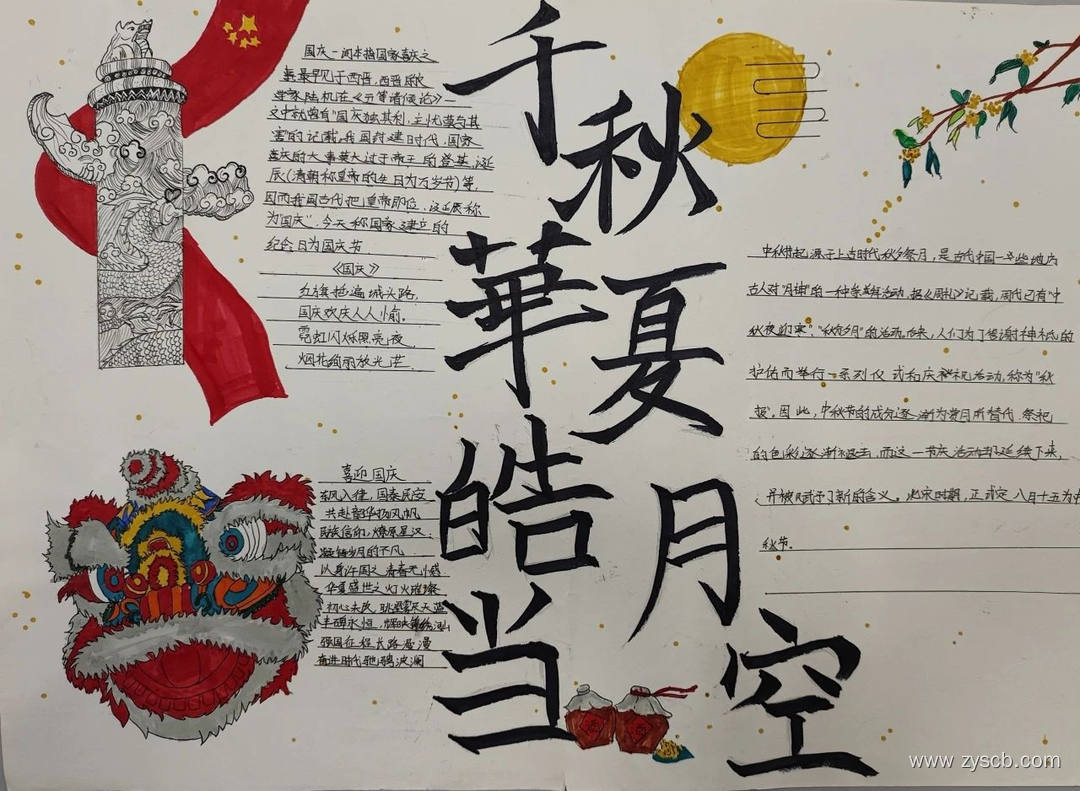 千秋華夏
皓月当空
国庆一词本指国家喜庆之
事最早见于西晋,西晋
学家陆机在《五等诸侯论》一
文中就曾有"国庆独其利,主忧莫与其
害"的记载,我国封建时代,国家
喜庆的大事莫大过于帝王的登基,诞
辰(清朝称皇帝的生日为万岁节)等.
因而我国古代把皇帝即位、诞辰称
为国庆".今天称国家建立的
纪念日为国庆节
《国庆》
红旗插遍城头路,
国庆欢庆人人愉。
霓虹闪烁照亮夜,
烟花绚丽放光芒.
喜迎国庆
东风入律,国泰民安
共赴韶华扬风帆
民族信仰,燎原星汉
岁月的不凡
以身许国之青春无憾
华夏盛世之灯火璀璨
初心未改,天蓝
丰碑永恒,
强国征程长路漫漫
奋进时代驰骋波澜
中秋节起源于上古时代秋夕祭月,是古代中国一些地方
古人对"月神"的一种崇拜活动,据《周礼》记载,周代已有"中
秋夜迎寒"."秋夕月"的活动.后来,人们为了答谢神祇的
护佑而举行一系列仪式和庆祝活动,称为"秋
报".因此,中秋节的成分逐渐为赏月所替代.祭祀
的色彩逐渐褪去,而这一节庆活动却延续下来,
并被赋予了新的含义。北宋时期,正式定八月十五为中
秋节.
www.zyscb.com